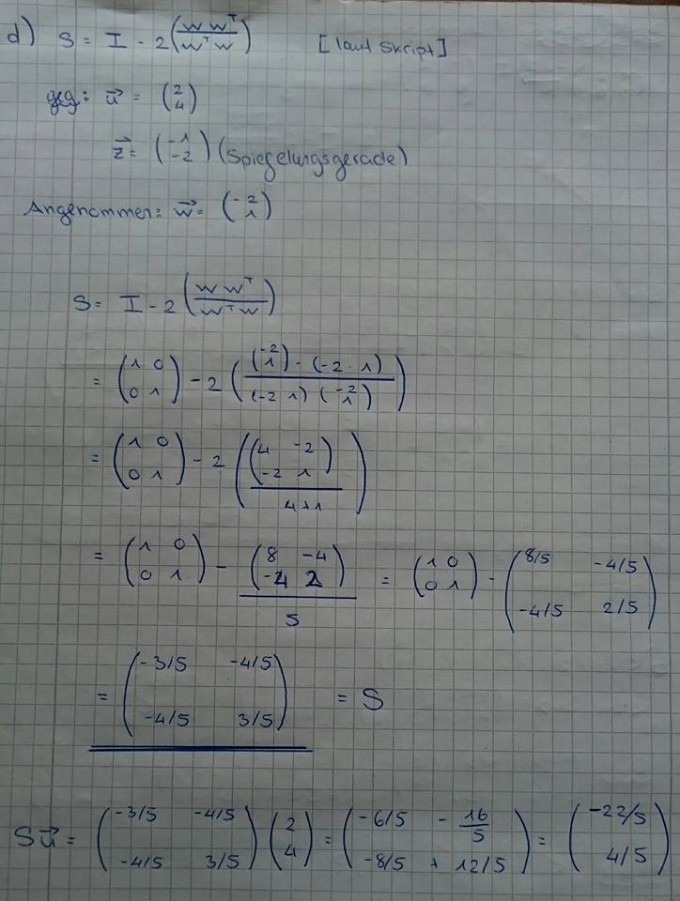 d) S = I - 2 (w wᵀ / wᵀ w) [laut Skript]
geg: u⃗ = (2 4)
z⃗ = (-1 -2) (Spiegelungsgerade)
Angenommen: w⃗ = (-2 1)
S = I - 2 (w wᵀ / wᵀ w)
= (1 0 0 1) - 2 ((-2 1) · (-2 1) / (-2 1) (-2 1))
= (1 0 0 1) - 2 ((4 -2 -2 1) / 4+1)
= (1 0 0 1) - (8 -4 -4 2) / 5 = (1 0 0 1) - (8/5 -4/5 -4/5 2/5)
= (-3/5 -4/5 -4/5 3/5) = S
Su⃗ = (-3/5 -4/5 -4/5 3/5) (2 4) = (-6/5 - 16/5 -8/5 + 12/5) = (-22/5 4/5)